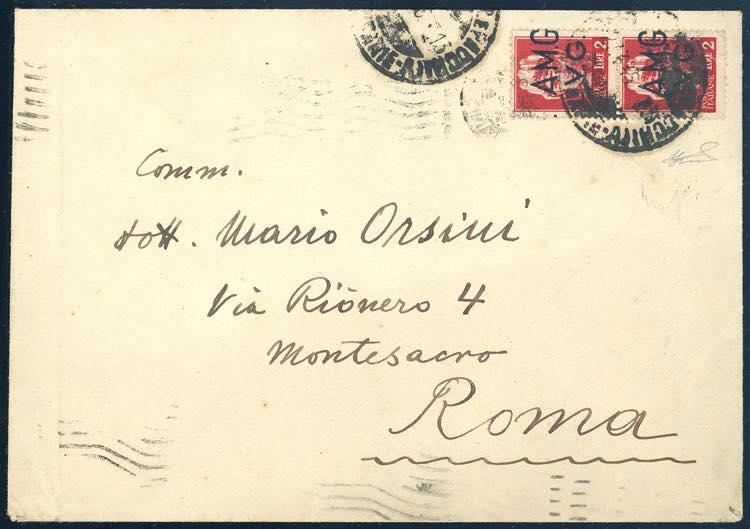 AMG
V.G.
LIRE 2
AMG
V.G.
LIRE 2
POSTE ITALIANE
Comm.
dott. Mario Orsini
Via Rionero 4
Montesacro
Roma